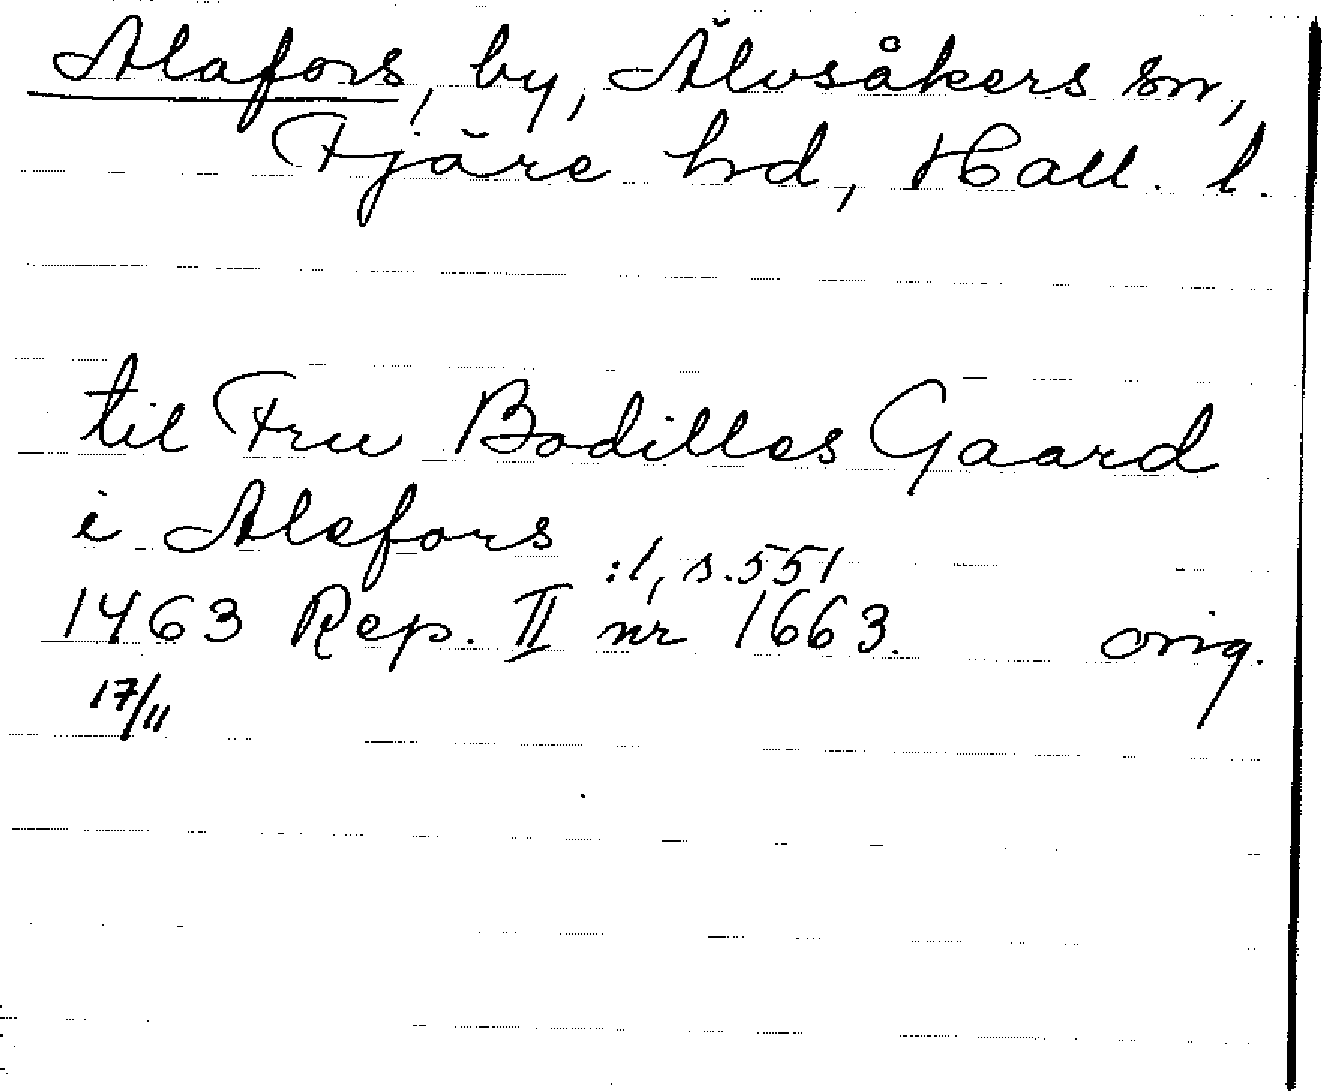 Alafors, by, Älvsåkers sn,
Fjäre hd, Hall. l.
til Fru Bodilles Gaard
i Alefors
:1, s. 551
1463 Rep. II nr 1663. orig.
17/11